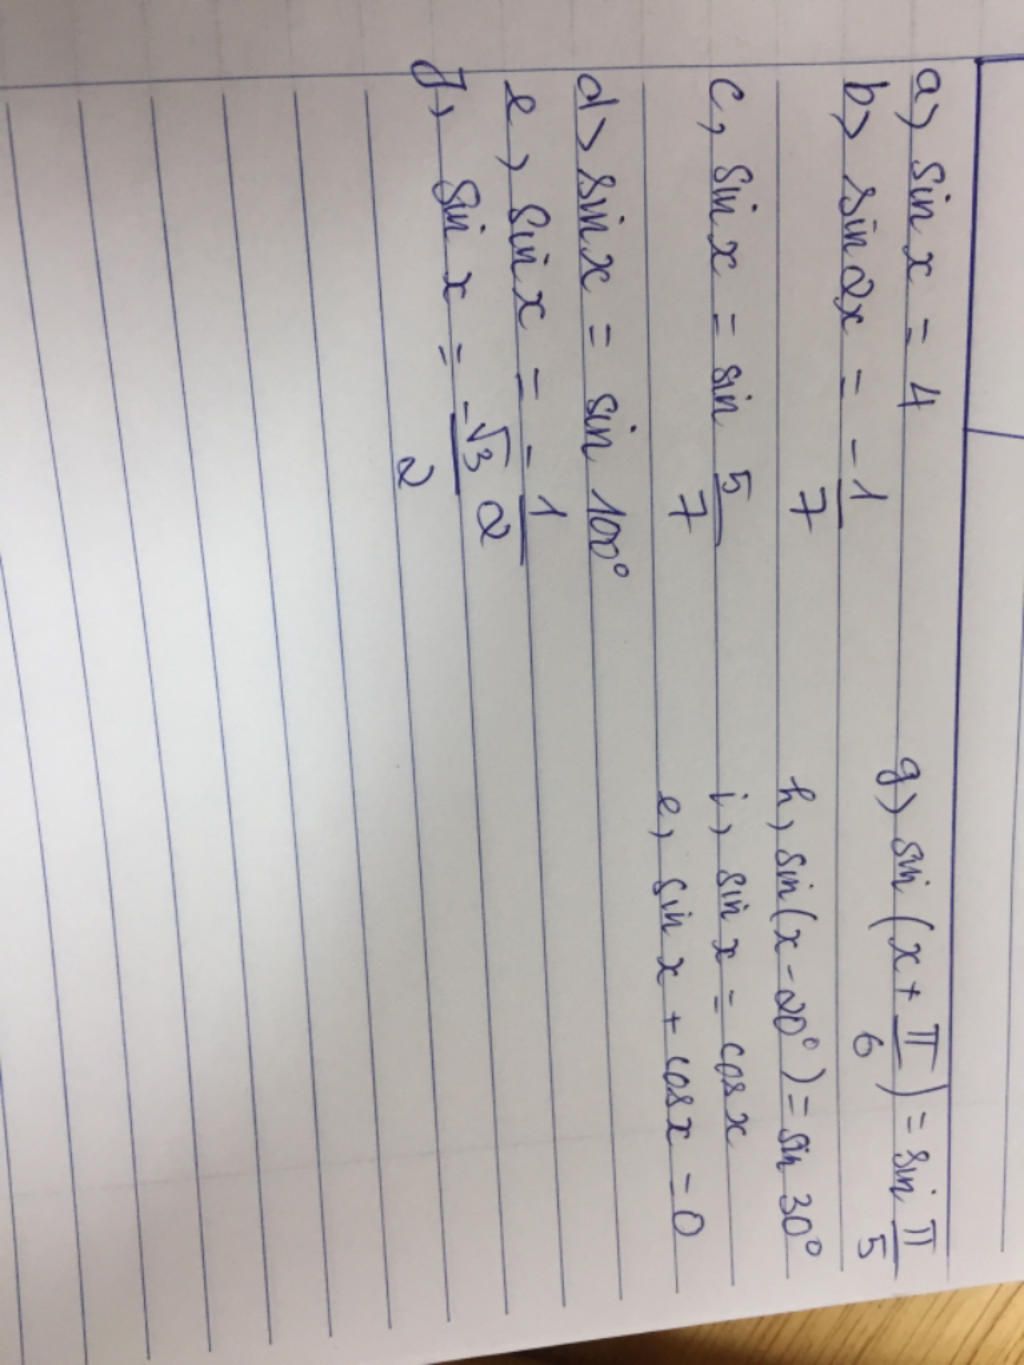 a) sin x = 4
b) sin 2x = -1/7
c, sin x = sin 5/7
d) sin x = sin 100°
e, sin x = -1/2
f, sin x = -√3/2
g) sin (x + π/6) = sin π/5
h, sin(x - 20°) = sin 30°
i, sin x = cos x
e, sin x + cos x = 0